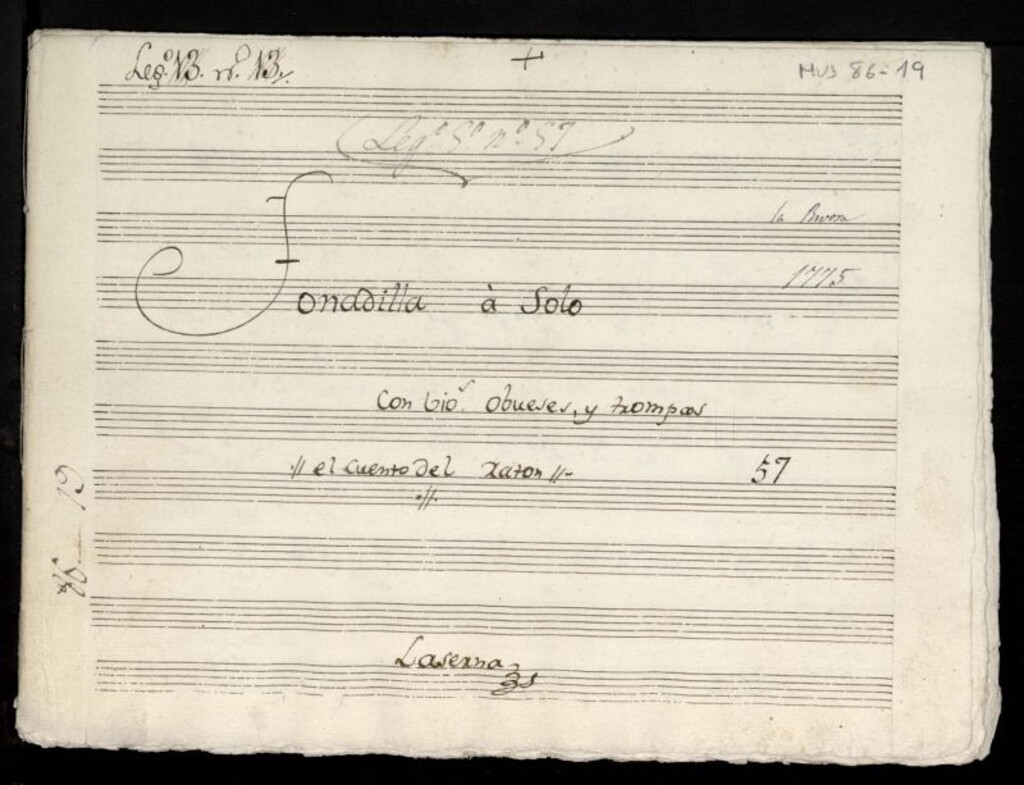 +
Leg.º 13. nº. 13.
MUS 86-19
(Leg.º 5º nº 57)
la
1775
Tonadilla à Solo
Con Vio.s Obueses, y trompas
·// el Cuento del Raton //-
·//·
57
86-19
Laserna